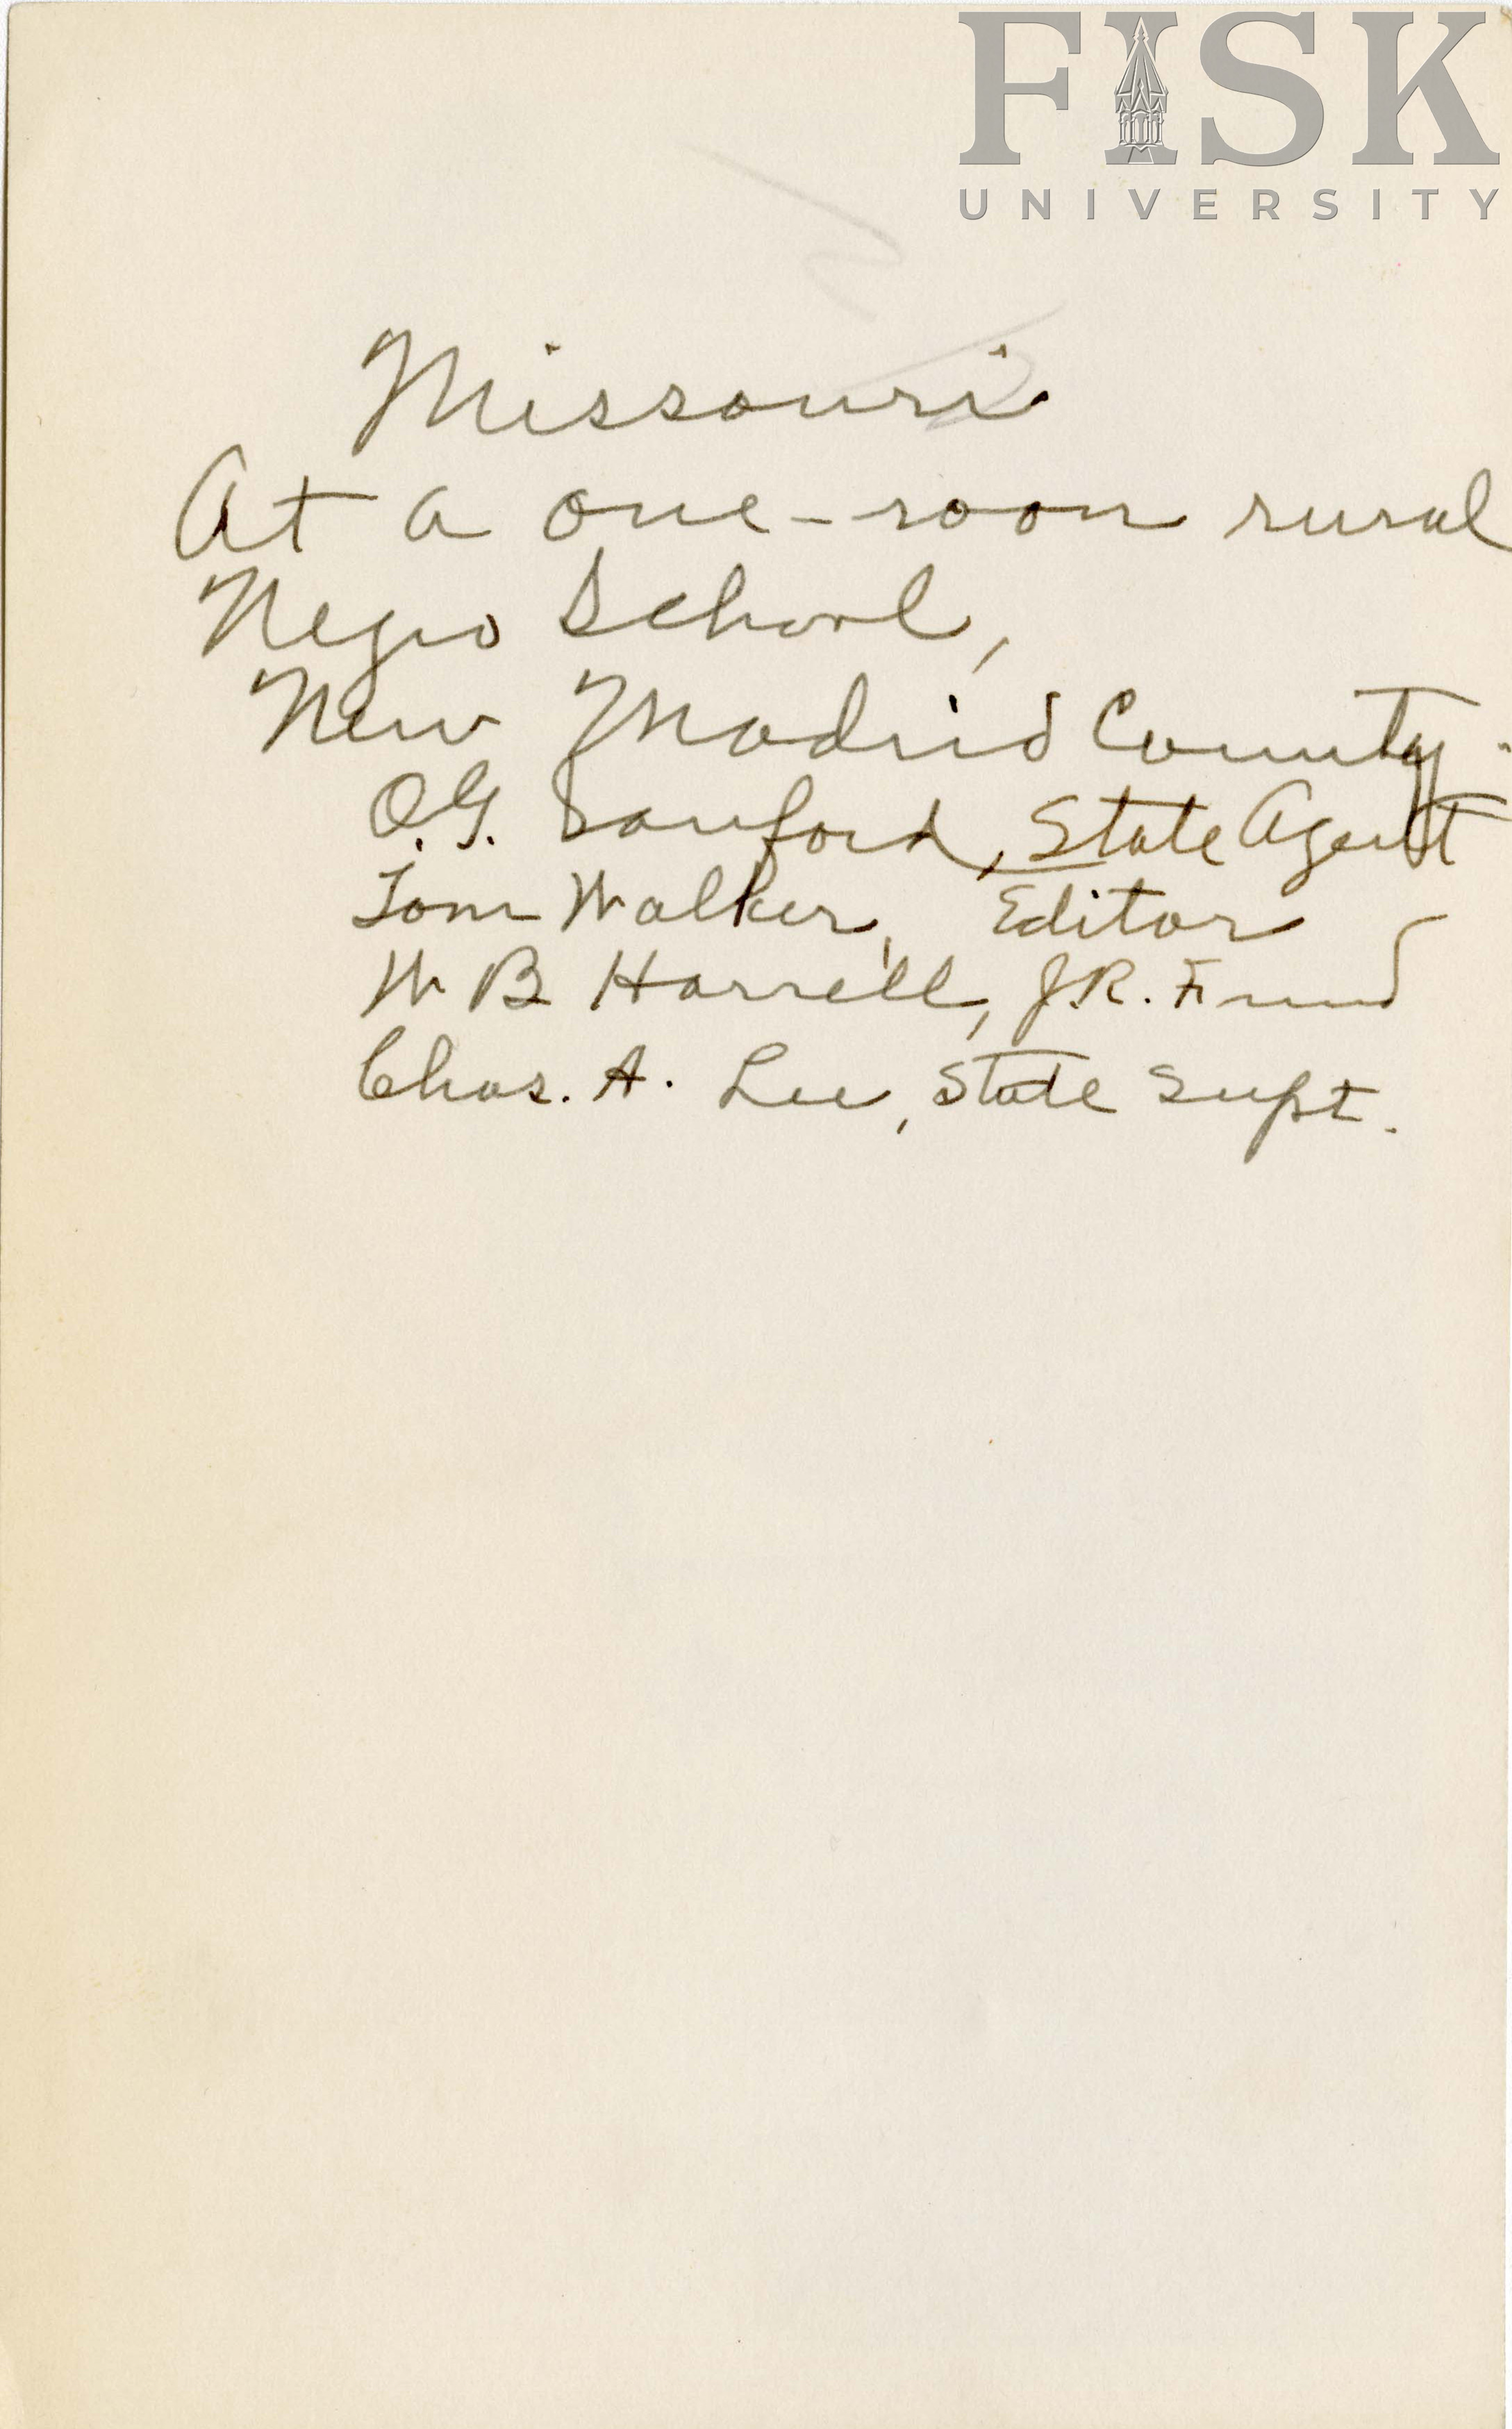 FISK
UNIVERSITY
Missouri
At a one-room rural
Negro School,
New Madrid County.
O.G. Sanford, State Agent
Tom Walker, Editor
W B Harrell, J.R. Fund
Chas. A. Lee, State Supt.